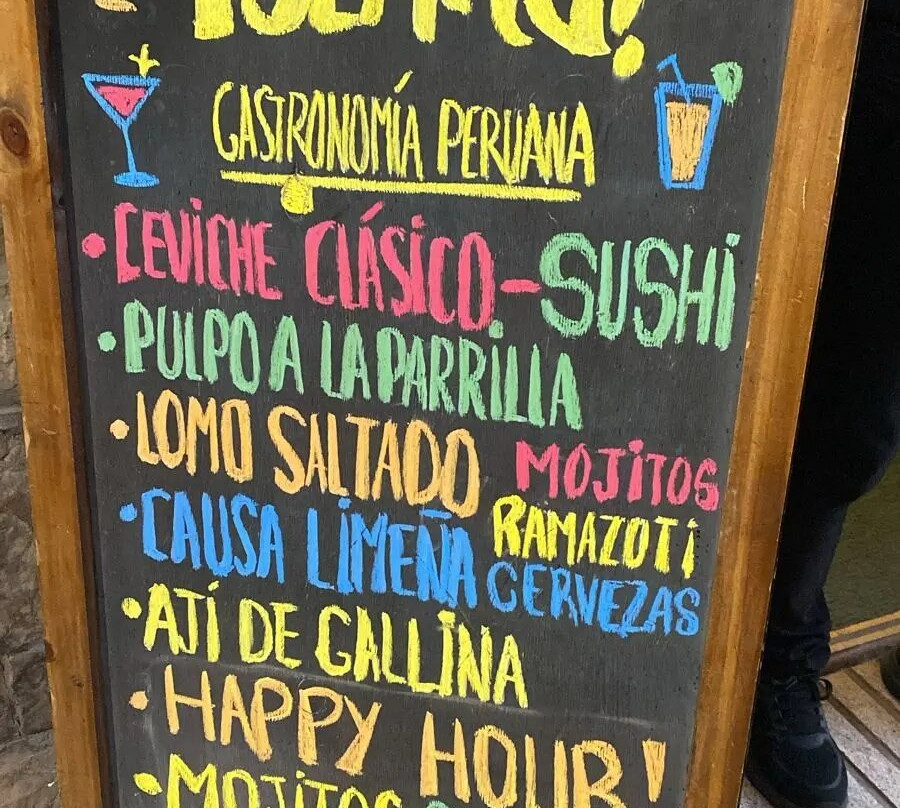 GASTRONOMÍA PERUANA
• CEVICHE CLÁSICO - SUSHI
• PULPO A LA PARRILLA
• LOMO SALTADO MOJITOS
RAMAZOTI
• CAUSA LIMEÑA CERVEZAS
• AJÍ DE GALLINA
• HAPPY HOUR!
• MOJITOS